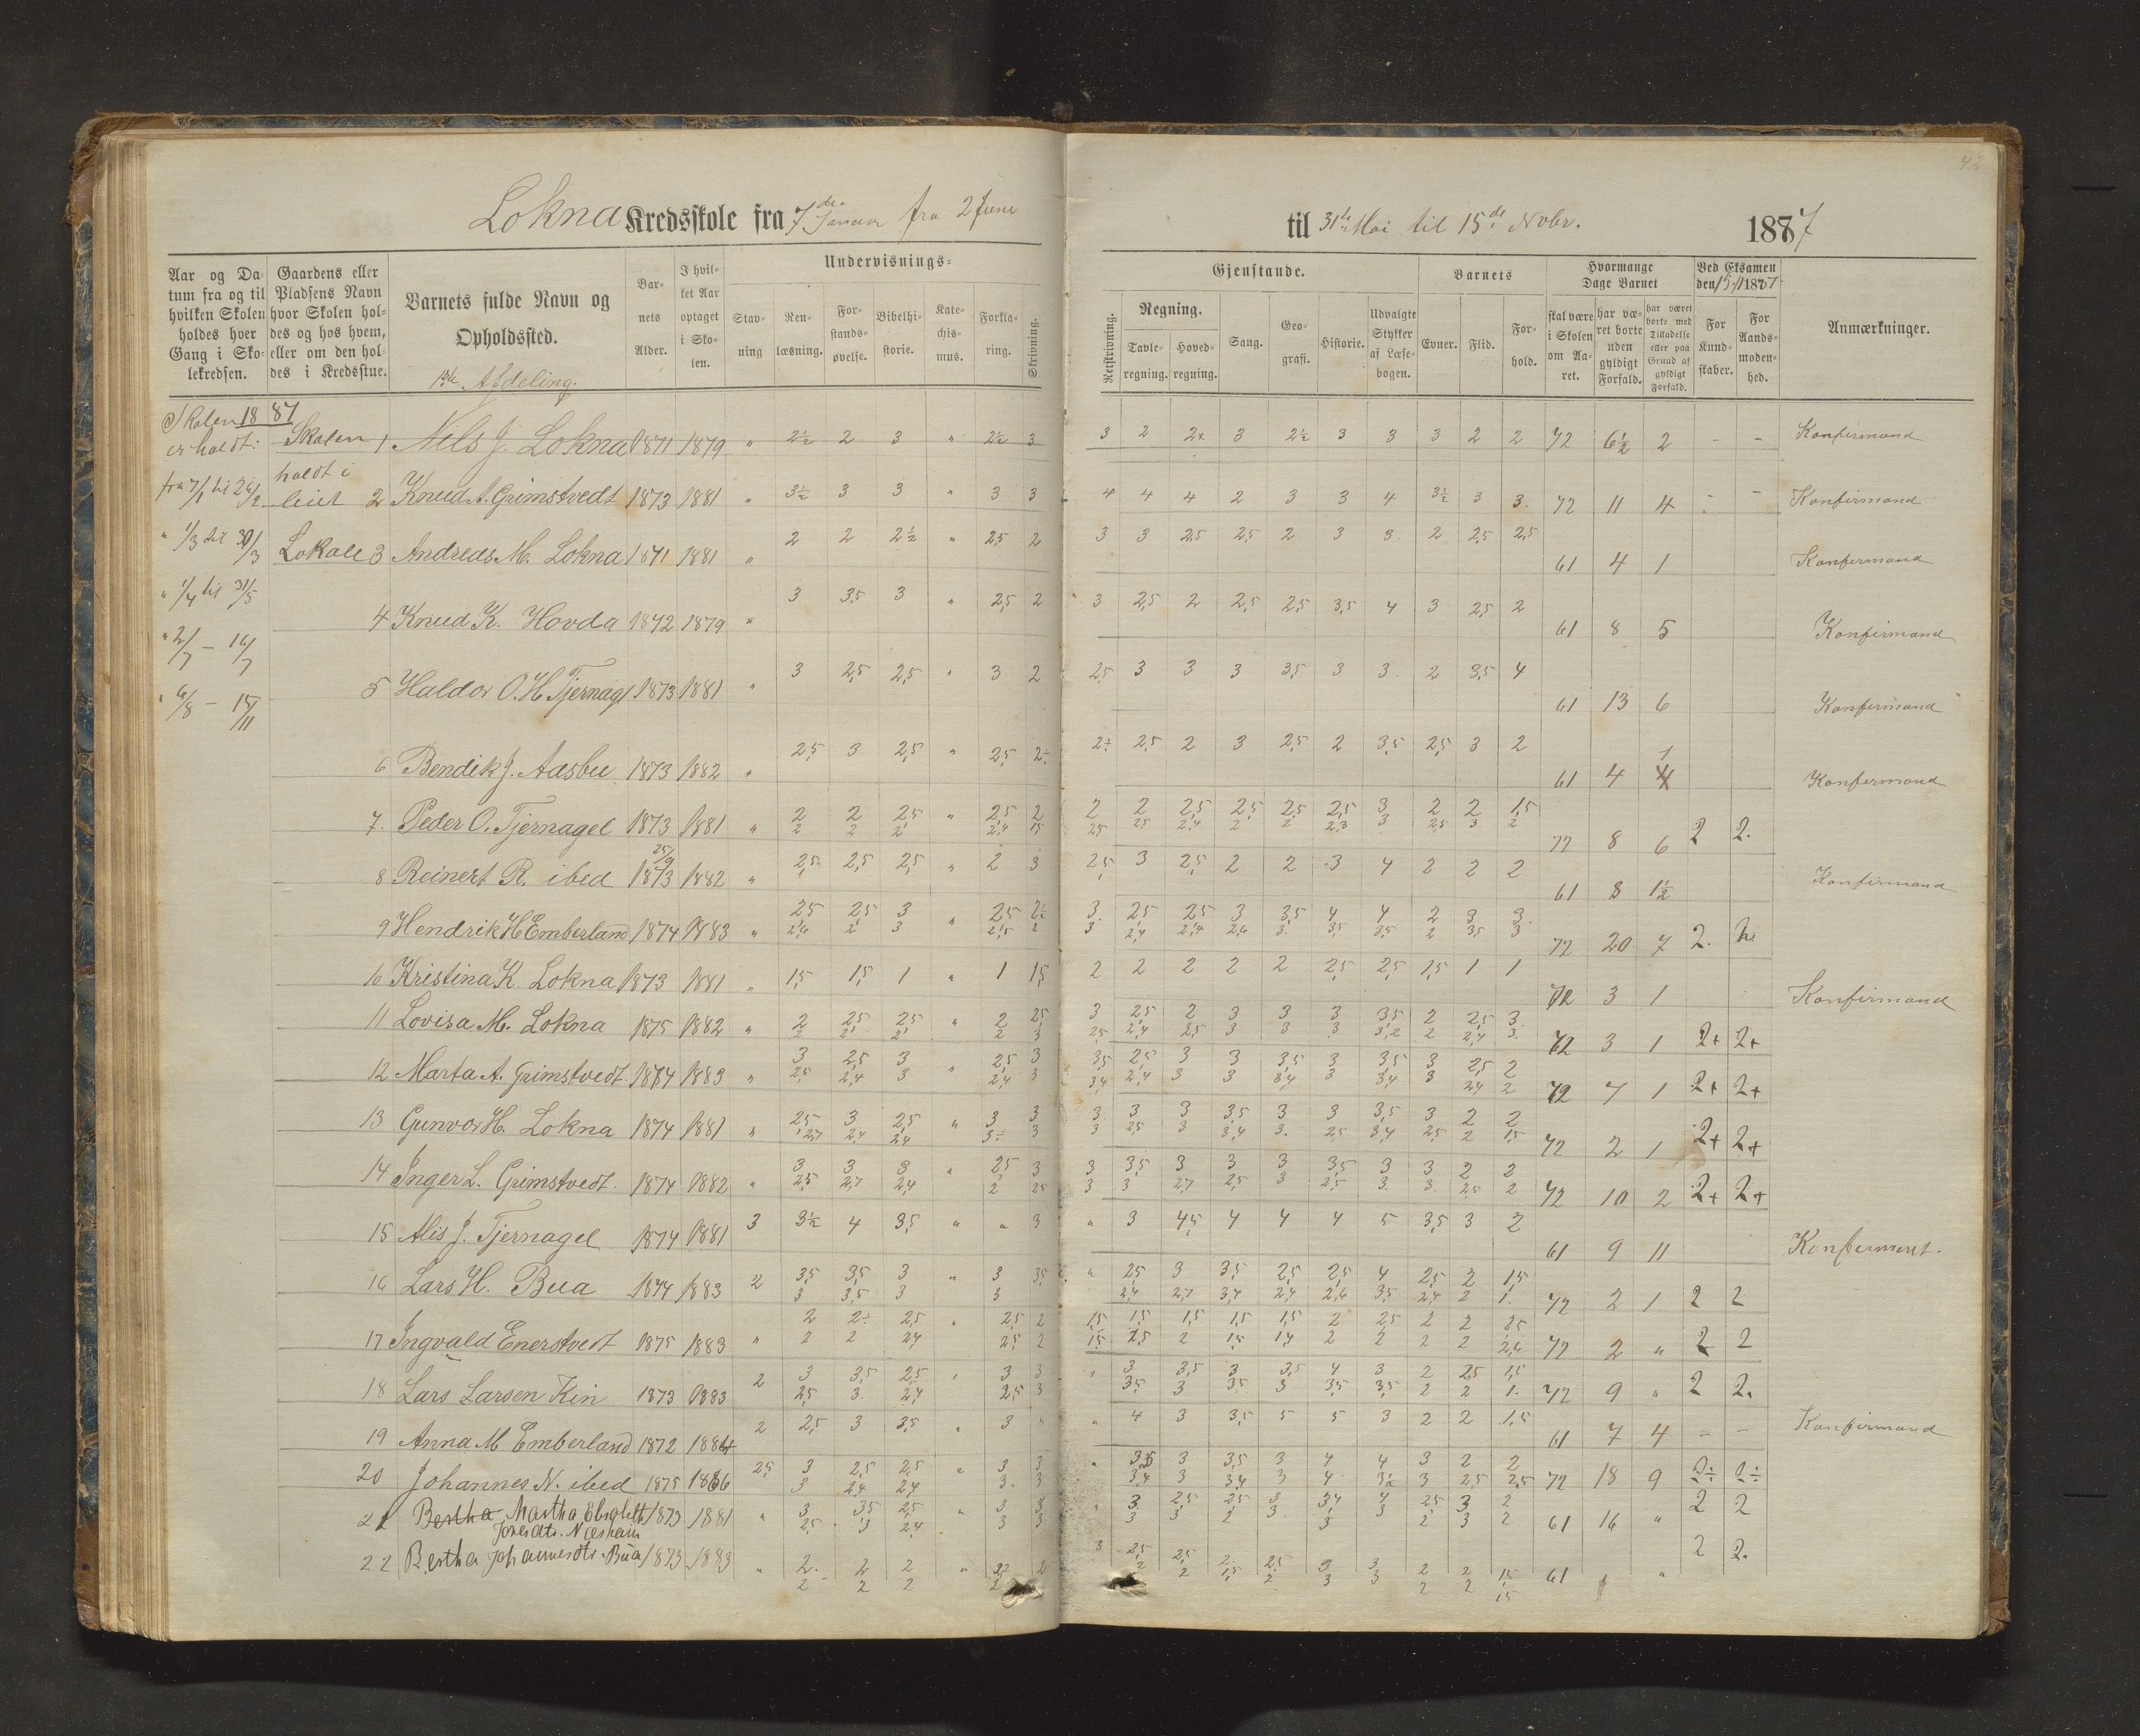 42
Lokna Kredsskole fra 7de Januar fra 2 Juni
til 31te Mai til 15de Novbr. 1887
Aar og Da-
tum fra og til
hvilken Skolen
holdes hver
Gang i Sko-
lekredsen.
Gaardens eller
Pladsens Navn
hvor Skolen hol-
des og hos hvem,
eller om den hol-
des i Kredsstue.
Barnets fulde Navn og
Opholdssted.
1ste Afdeling.
Bar-
nets
Alder.
I hvil-
ket Aar
optaget
i Sko-
len.
Undervisnings-
Stav-
ning
Ren-
læsning.
For-
stands-
øvelse.
Bibelhi-
storie.
Kate-
chis-
mus.
Forkla-
ring.
Skrivning.
Gjenstande.
Retskrivning.
Regning.
Tavle-
regning.
Hoved-
regning.
Sang.
Geo-
grafi.
Historie.
Udvalgte
Stykker
af Læse-
bogen.
Barnets
Evner.
Flid.
For-
hold.
Hvormange
Dage Barnet
skal være
i Skolen
om Aa-
ret.
har væ-
ret borte
uden
gyldigt
Forfald.
har været
borte med
Tilladelse
eller paa
Grund af
gyldigt
Forfald.
Ved Eksamen
den 15/11 1887.
For
Kund-
skaber.
For
Aands-
moden-
hed.
Anmærkninger.
Skolen 1887
er holdt:
fra 7/1 til 26/2
" 1/3 til 30/3
" 1/4 til 31/5
" 2/7 - 16/7
" 6/8 - 15/11
Skolen
holdt i
leiet
Lokale
1 Nils J. Lokna 1871 1879 " 2½ 2 3 " 2½ 3 3 2 2+ 3 2½ 3 3 3 2 2 72 6½ 2 - - Konfirmand
2 Knud A. Grimstvedt 1873 1881 " 3½ 3 3 " 3 3 4 4 4 2 3 3 4 3½ 3 3. 72 11 4 - - Konfirmand
3 Andreas M. Lokna 1871 1881 " 2 2 2½ " 2,5 2 3 3 2,5 2,5 2 3 3 2 2,5 2,5 61 4 1 Konfirmand
4 Knud K. Hovda 1872 1879 " 3 3,5 3 " 2,5 2 3 2,5 2 2,5 2,5 3,5 4 3 2,5 2 61 8 5 Konfirmand
5 Haldor O. H. Tjernagl 1873 1881 " 3 2,5 2,5 " 3 2 2,5 3 3 3 3,5 3 3 2 3,5 4 61 13 6 Konfirmand
6 Bendik J. Aasbu 1873 1882 " 2,5 3 2,5 " 2,5 2÷ 2+ 2,5 2 3 2,5 2 3,5 2,5 3 2 61 4 1 Konfirmand
7. Peder O. Tjernagel 1873 1881 " 2 2 2,5 " 2,5 2 2 2 2,5 2,5 2,5 2,5 3 2 2 1,5 72 8 6 2 2.
2 2 2 2,4 1,5 2,5 2,5 2,4 2 2 2,3 3 2,5 3 2
8 Reinert R. ibed 25/9 1873 1882 " 2,5 2,5 2,5 " 2 3 2,5 3 2,5 2 2 3 4 2 2 2 61 8 1½ Konfirmand
9 Hendrik H Emberland 1874 1883 " 2,5 2,5 3 " 2,5 2½ 3. 2,5 2,5 3 3,5 4 4 2 3 3. 72 20 7 2.
2,6 2 3 2,5 2 3 2,4 2,4 2,6 3. 3,5 3,5 2 3,5 3
10 Kristina K. Lokna 1873 1881 " 1,5 1,5 1 " 1 1,5 2 2 2 2 2 2,5 2,5 1,5 1 1 72 3 1 Konfirmand
11 Lovisa M. Lokna 1875 1882 " 2 2,5 2,5 " 2 2,5 3 2,5 2 3 3 3 3,5 2 2,5 3. 72 3 1 2+ 2+
2 2 2 2 3 2,5 2,4 2,5 3 3 3 3,2 2 2,4 3.
12 Marta A. Grimstvedt. 1874 1883 " 3 2,5 3 " 2,5 3 3,5 2,5 3 3 3,5 3 3,5 3 2,5 2 72 7 1 2+ 2+
2,5 2,4 3 2,4 3 3,4 2,4 3 3 3,4 3 3,4 3 2,4 2
13 Gunvor H. Lokna 1874 1881 " 2,5 3 2,5 " 3 3 3 3 3 3,5 3 3 3,5 3 2 2 72 2 1 2+ 2+
2,7 2,4 2,4 3÷ 3 3 2,5 3 3,4 3. 2,5 3,4 2,5 2 1,5
14 Inger L. Grimstvedt. 1874 1882 " 3 3 3 " 2,5 3 3 3,5 3 3 3 3,5 3 3 2 2 72 10 2 2+ 2+
2,5 2,7 2,4 2 2,5 3 3 2,7 2,5 3 2,5 3. 3. 2,5 2
15 Alis J. Tjernagel 1874 1881 3 3½ 4 3,5 " " 3 " 3 4,5 4 4 4 5 3,5 3 2 61 9 11 Konfirmert.
16 Lars H. Bua 1874 1883 2 3,5 3,5 3 " 3 3,5 " 2,5 3 3,5 2,5 2,5 4 2,5 2 1,5 72 2 1 2 2
3 3,5 3 3 2,4 2,7 3,4 2,4 2,6 3,5 2,4 2 1.
17 Ingvald Enerstvedt 1875 1883 " 2 2÷ 2,5 " 2,5 2 1,5 1,5 1,5 1,5 1,5 2 2,5 2 2 2,5 72 2 " 2 2
2 2 2,4 2,5 2 1,5 1,5 2 1,5 1,4 2 2 2 2 2,6
18 Lars Larsen Kin 1873 1883 2 3 3,5 2,5 " 3 3 " 3 3,5 3 3,5 4 3 2 2,5 1,5 72 9 " 2 2.
2,5 3 2,4 2,5 3 3,5 3 3,5 3 3,5 3,5 2 2 1.
19 Anna M Emberland 1872 1884 2 2,5 3 3,5 " 3 " " 4 3 3,5 5 5 3 2 2 1,5 61 7 4 - - Konfirmand
20 Johannes N. ibed 1875 1886 2,5 3 2,5 2,5 " 3 3 " 3,5 3 3,5 3 4 4 3 2 2 72 18 9 2÷ 2÷
3 2,4 2,4 3. 3 3,4 3 3,4 3 4 3½ 3 2,5 2,5
21 Bertha Martha Elisabeth 1873 1881 " 3 3,5 2,5 " 3 3 " 3. 2,5 2,5 3 3,4 4 2,5 3 2 61 16 " 2 2
2,5 3 2,4 3 3 3 3 2 3 3 3 2 3 2
22 Bertha Johannesdtr. Bua 1873 1883 " 2. 2 2 " 2 3 2,5 2,5 2 2,5 3 3 2 2 1,5 61 " 2 2.
2 2 2 2 2 2 1,5 2 3 3 2 2 1,5